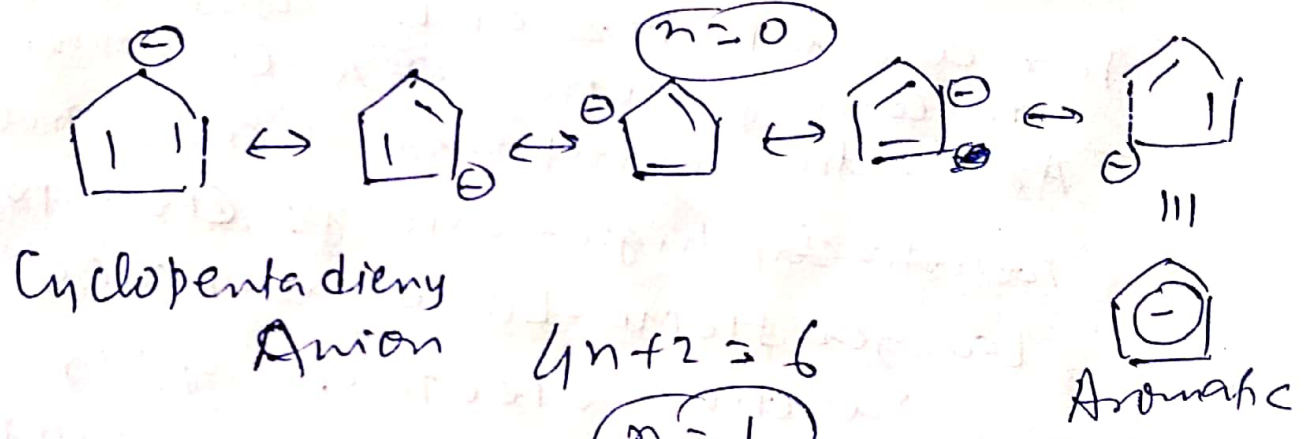 n=0
⊖
⊖
⊖
⊖
⊖
Cyclopentadieny
Anion
4n+2=6
n=1
−
Aromatic